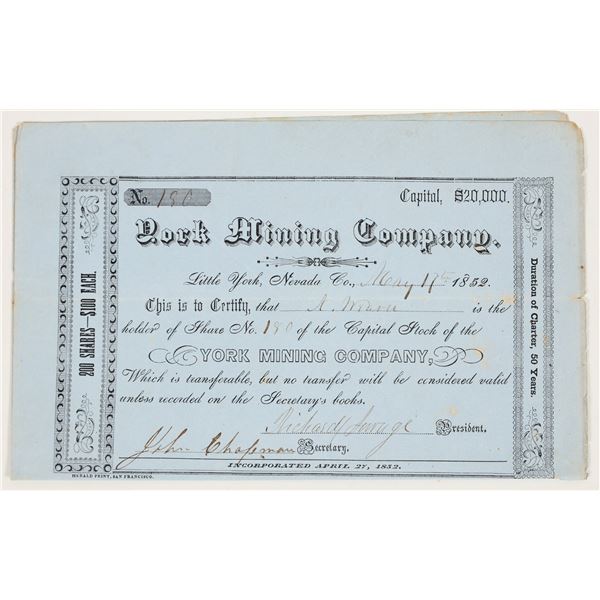 No. 180
Capital, $20,000.
York Mining Company.
Little York, Nevada Co., May 17th 1852.
This is to Certify, that A. is the
holder of Share No. 180 of the Capital Stock of the
YORK MINING COMPANY,
Which is transferable, but no transfer will be considered valid
unless recorded on the Secretary's books.
Richard Savage President.
John Chapman Secretary.
INCORPORATED APRIL 27, 1852.
HERALD PRINT, SAN FRANCISCO.
200 SHARES—$100 EACH.
Duration of Charter, 50 Years.